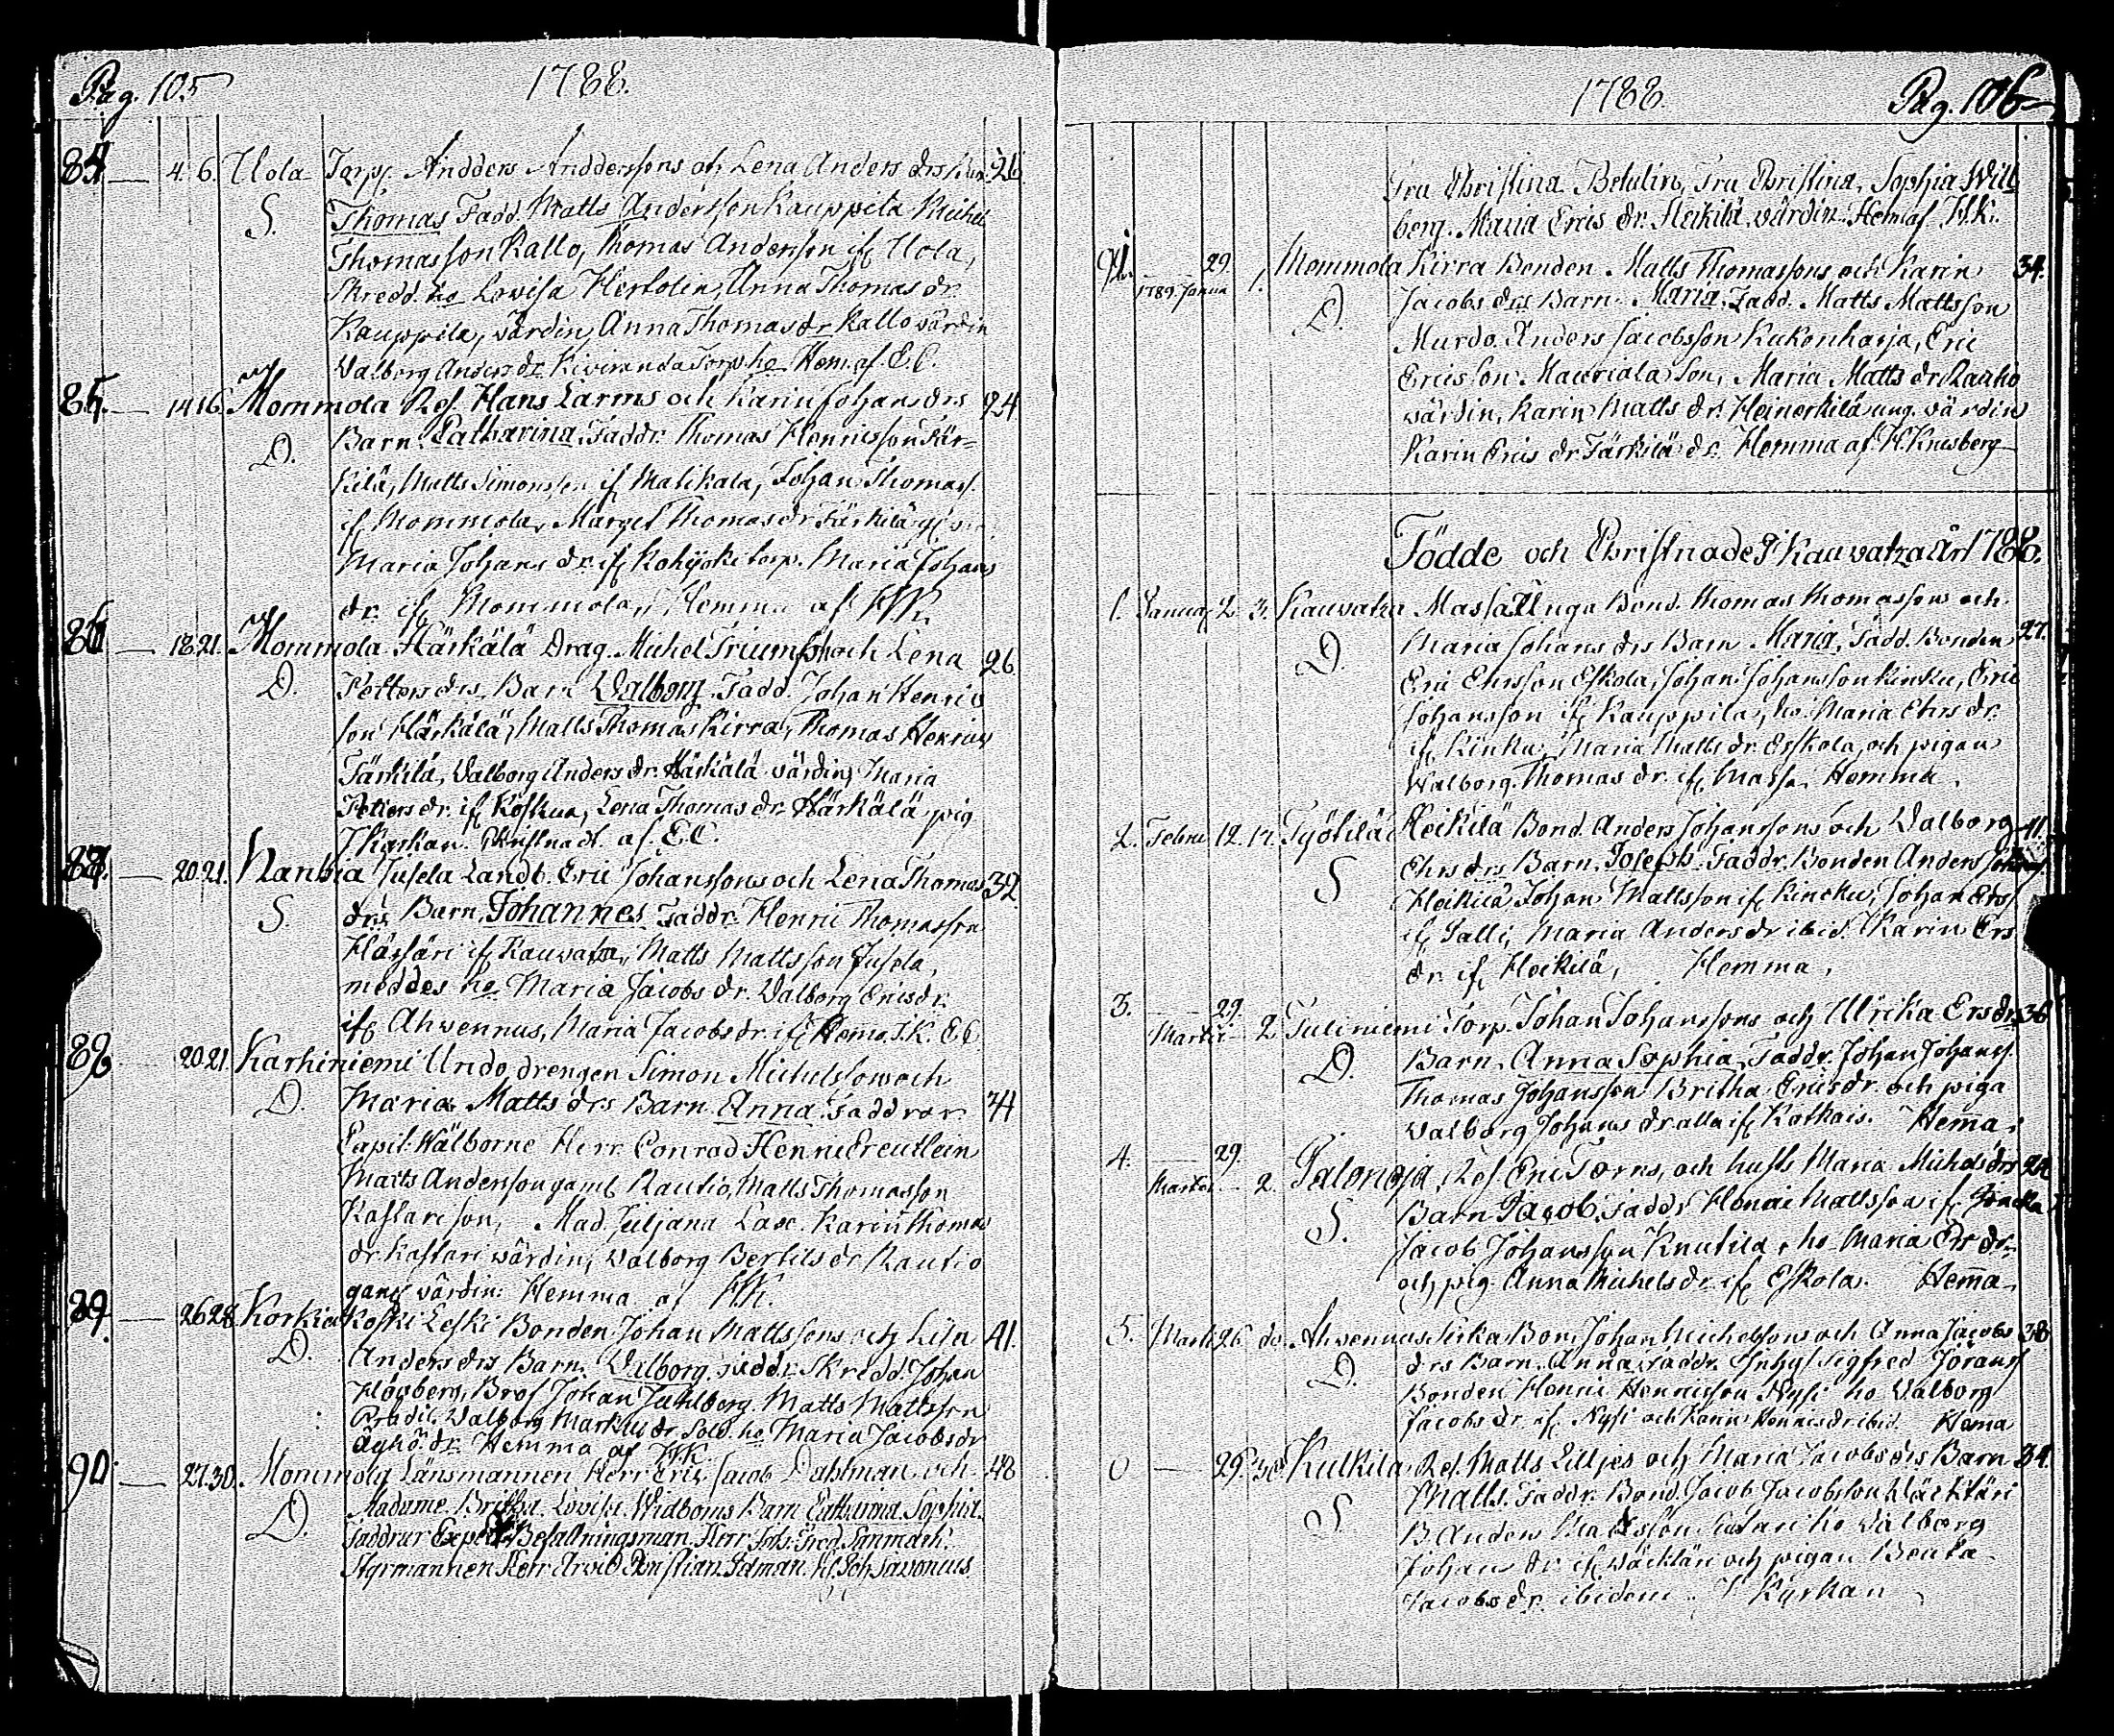 Pag. 105
1788.
84 — 4. 6. Uola Torp. Andders Anddersons och Lena Anders drs Barn 26
S. Thomas Fadd. Matts Andersson Kauppila Michel
Thomasson Kallo, Thomas Andersson if Uola,
Skredd. ho Lovisa Hertolin, Anna Thomas dr.
Kauppila, värdin, Anna Thomas dr Kallo värdin
Valborg Anders dr. Kiviranda Torp. ho Hem. af E. C.
85. — 14.16. Mommola Ref. Hans Larms och Karin Johans drs 24
D. Barn. Catharina. Faddr. Thomas Henricsson Fär-
kilä, Matts Simonsson if Malikala, Johan Thomass.
if Mommola, Marget Thomas dr. Färkilä
Maria Johans dr. if Kohyoki torp. Maria Johans
dr. if Mommola, Hemma af H.K.
86 — 18.21. Mommola Härkälä Drag. Michel Triumph och Lena 26
D. Petters drs. Barn Valborg. Fadd. Johan Henrics
son Härkälä, Matts Thomas Kirra, Thomas Henrics
Färkilä, Valborg Anders dr. Härkälä värdin, Maria
Petters dr. if Koskua, Lena Thomas dr. Härkälä pig.
I Kyrkan. Christnadt af. E.C.
87. — 20.21. Nanhia Jusela Landb. Eric Johanssons och Lena Thomas 32
S. drs Barn, Johannes. Faddr. Henric Thomasson
if Kauvatza, Matts Mattsson Jusela,
meddes ho Maria Jacobs dr. Valborg Erics dr.
if Ahvennus, Maria Jacobs dr. if Hema. I.K. E C
88 20.21. Karhiniemi Undo drengen Simon Michelssons och
D. Maria Matts drs Barn Anna. Faddrar 34
Capit. Wälborne Herr Conrad Henric Creutlein
Matts Andersson gamb. Rautio, Matts Thomasson
Kastari son, Mad. Juljana Lax. Karin Thomas
dr. Kastari värdin, Valborg Bertils dr Rautio
gaml värdin. Hemma af H.K.
89. — 26.28. Korkia Koski Leski Bonden Johan Mattssons och Liln 41.
D. Anders drs Barn. Valborg. Faddr. Skredd. Johan
Högberg, Brof Johan Juhlberg. Matts Mattsson
Valborg Markus dr. Sold. ho Maria Jacobs dr
Äyhö dr. Hemma af H.K.
90. — 27.30. Mommola Länsmannen Herr Eric Jacob Dahlman och 48
D. Madame Britha Lovisa Widboms Barn Catharina Sophia.
Faddrar Exped. Befallningsman Herr Joh: Fred. Tanmark.
Styrmannen Herr Arvid Christian Idman. H. Joh Savonius
1788
Pag. 106
Fru Christina Betulin, Fru Christina, Sophia Will
berg. Maria Erics dr. Heikilä värdin. Hem af H.K.
91. — 29. Mommola Kirra Bonden Matts Thomassons och Karin 34.
1789. Janua 1.
D. Jacobs drs Barn. Maria. Fadd. Matts Mattsson
Murdo. Anders Jacobsson Kukonharja, Eric
Ericsson Mauriala son, Maria Matts dr Rautio
wärdin, Karin Matts dr. Heinerkilä ung. värdin
Karin Erics dr Färkilä dr. Hemma af H. Knusberg
Födde och Christnade I Kauvatza År 1788.
1. Januar 2. 3. Kauvatza Massa Unga Bond. Thomas Thomassons och
D. Maria Johans drs Barn Maria, Fadd. Bonden 27.
Eric Ehrsson Eskola, Johan Johansson Kinku, Eric
Johansson if Kauppila, ho Maria Ehrs dr.
if Kinku, Maria Matts dr. Eskola, och pigan
Walborg. Thomas dr. if Massa. Hemma.
2. Febru 12. 17. Työtilä Heikilä Bond. Anders Johanssons och Valborg 41.
S Ehrs drs Barn. Joseph. Faddr. Bonden Anders
Heikilä, Johan Mattsson if Kincku, Johan Ers
if Salli, Maria Anders dr ibid. Karin Ers
dr. if Heikilä, Hemma.
3. — 29. Tulimiemi Torp. Johan Johanssons och Ulrika Ers drs 36
Martii — 2.
D. Barn. Anna Sophia. Faddr. Johan Johanss.
Thomas Johansson Britha Erics dr. och piga
Walborg Johans dr alla if Kathais. Hem̄a.
4. — 29. Palonoja Ref. Eric Torns, och husfs Maria Michels drs 24
Martii — 2.
S. Barn Jacob. Faddr Henric Mattsson if
Jacob Johansson Knutila, ho Maria Ers dr.
och pig Anna Michels dr. if Eskola. Hem̄a.
5. Marti 26. do. Ahvennus Sirka Bon. Johan Michelssons och Anna Jacobs 38
D. drs Barn. Anna, Faddr. Sigfred Jöranss
Bonden Henric Henricsson Nysi ho Valborg
Jacobs dr. if Nysi och Karin Henrics dr ibid. Hema
— 29. 30 Kulkila Ref. Matts Liljes och Maria Jacobs drs Barn 34.
S Matts. Faddr. Bond. Jacob Jacobsson Wäcktäri
B. Anders Mattsson ho Valborg
Johans dr. if Wäcktäri och pigan Beata
Jacobs dr. ibidem. I Kyrkan